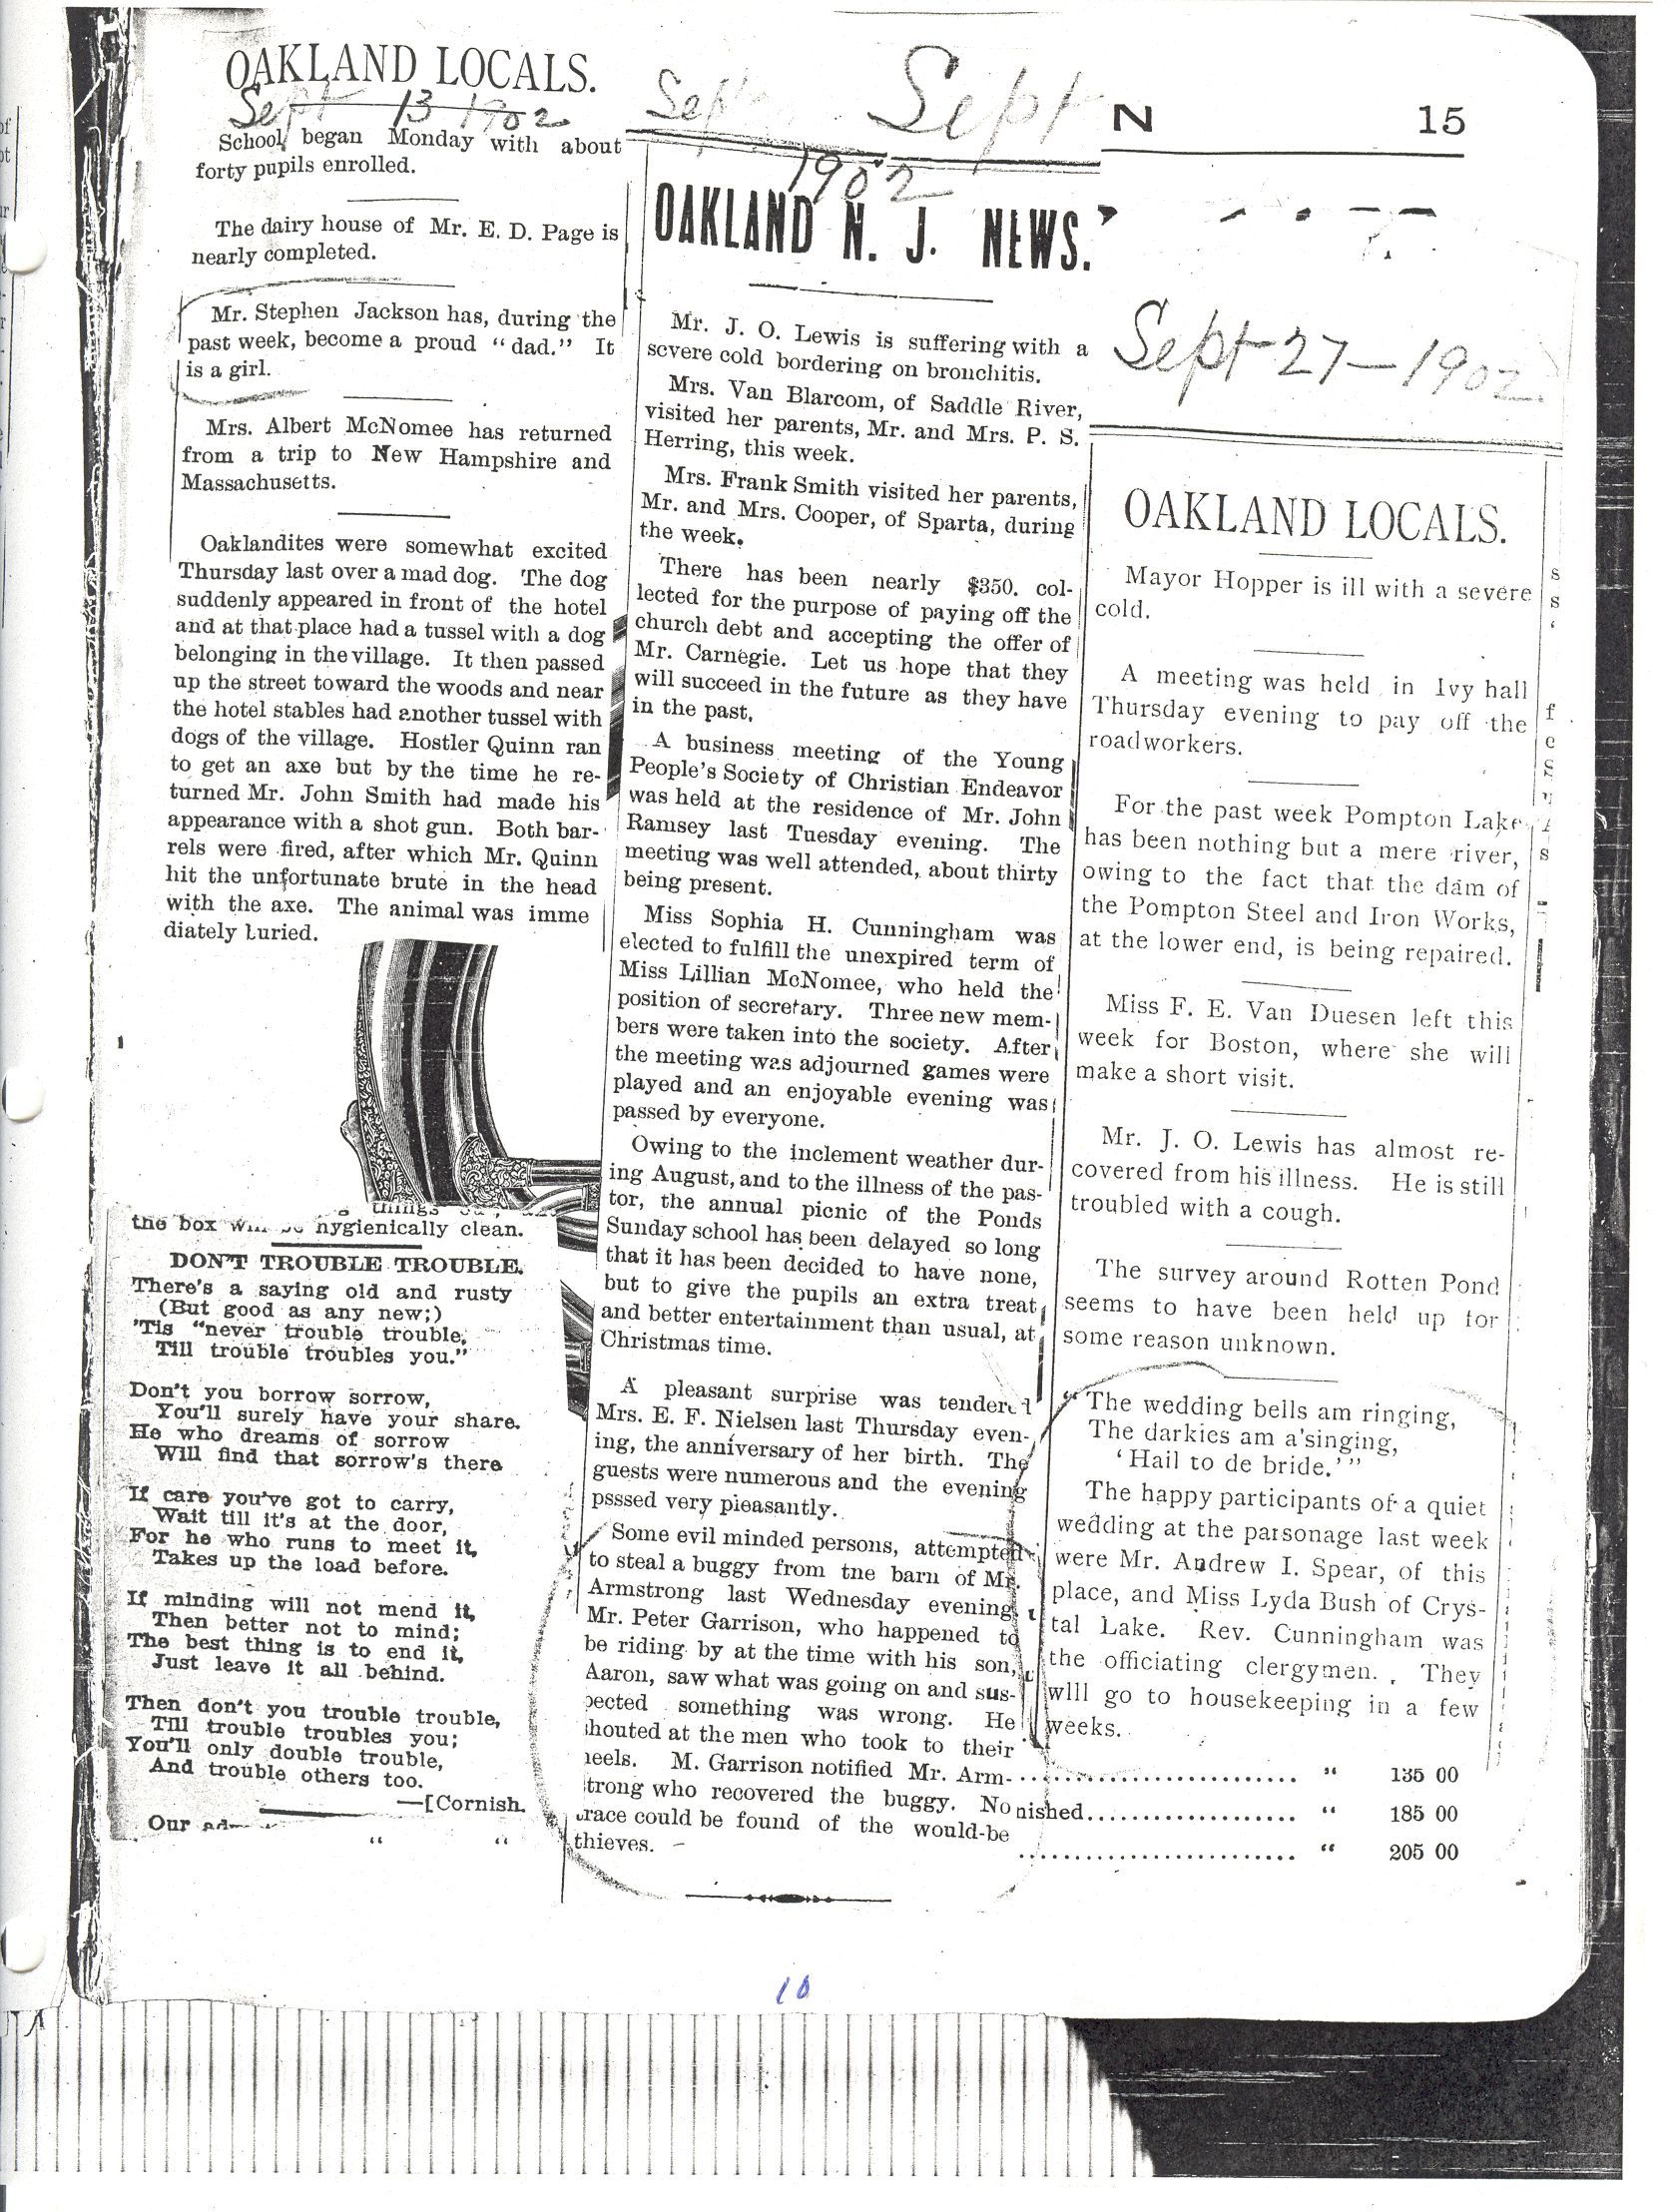 OAKLAND LOCALS.
Sept 13 1902
School began Monday with about
forty pupils enrolled.
The dairy house of Mr. E. D. Page is
nearly completed.
Mr. Stephen Jackson has, during the
past week, become a proud "dad." It
is a girl.
Mrs. Albert McNomee has returned
from a trip to New Hampshire and
Massachusetts.
Oaklandites were somewhat excited
Thursday last over a mad dog. The dog
suddenly appeared in front of the hotel
and at that place had a tussel with a dog
belonging in the village. It then passed
up the street toward the woods and near
the hotel stables had another tussel with
dogs of the village. Hostler Quinn ran
to get an axe but by the time he re-
turned Mr. John Smith had made his
appearance with a shot gun. Both bar-
rels were fired, after which Mr. Quinn
hit the unfortunate brute in the head
with the axe. The animal was imme
diately buried.
things
the box be hygienically clean.
DON'T TROUBLE TROUBLE.
There's a saying old and rusty
(But good as any new;)
'Tis "never trouble trouble,
Till trouble troubles you."
Don't you borrow sorrow,
You'll surely have your share.
He who dreams of sorrow
Will find that sorrow's there
If care you've got to carry,
Wait till it's at the door,
For he who runs to meet it,
Takes up the load before.
If minding will not mend it,
Then better not to mind;
The best thing is to end it,
Just leave it all behind.
Then don't you trouble trouble,
Till trouble troubles you;
You'll only double trouble,
And trouble others too.
—[Cornish.
Our
" "
Sept Sept
1902
OAKLAND N. J. NEWS.
Mr. J. O. Lewis is suffering with a
severe cold bordering on bronchitis.
Mrs. Van Blarcom, of Saddle River,
visited her parents, Mr. and Mrs. P. S.
Herring, this week.
Mrs. Frank Smith visited her parents,
Mr. and Mrs. Cooper, of Sparta, during
the week.
There has been nearly $350. col-
lected for the purpose of paying off the
church debt and accepting the offer of
Mr. Carnegie. Let us hope that they
will succeed in the future as they have
in the past.
A business meeting of the Young
People's Society of Christian Endeavor
was held at the residence of Mr. John
Ramsey last Tuesday evening. The
meetiug was well attended, about thirty
being present.
Miss Sophia H. Cunningham was
elected to fulfill the unexpired term of
Miss Lillian McNomee, who held the
position of secretary. Three new mem-
bers were taken into the society. After
the meeting was adjourned games were
played and an enjoyable evening was
passed by everyone.
Owing to the inclement weather dur-
ing August, and to the illness of the pas-
tor, the annual picnic of the Ponds
Sunday school has been delayed so long
that it has been decided to have none,
but to give the pupils an extra treat
and better entertainment than usual, at
Christmas time.
A pleasant surprise was tendered
Mrs. E. F. Nielsen last Thursday even-
ing, the anniversary of her birth. The
guests were numerous and the evening
psssed very pieasantly.
Some evil minded persons, attempted
to steal a buggy from tne barn of Mr.
Armstrong last Wednesday evening.
Mr. Peter Garrison, who happened to
be riding by at the time with his son,
Aaron, saw what was going on and sus-
pected something was wrong. He
shouted at the men who took to their
heels. M. Garrison notified Mr. Arm-
strong who recovered the buggy. No
trace could be found of the would-be
thieves.
N 15
Sept 27-1902
OAKLAND LOCALS.
Mayor Hopper is ill with a severe
cold.
A meeting was held in Ivy hall
Thursday evening to pay off the
roadworkers.
For the past week Pompton Lake
has been nothing but a mere river,
owing to the fact that the dam of
the Pompton Steel and Iron Works,
at the lower end, is being repaired.
Miss F. E. Van Duesen left this
week for Boston, where she will
make a short visit.
Mr. J. O. Lewis has almost re-
covered from his illness. He is still
troubled with a cough.
The survey around Rotten Pond
seems to have been held up for
some reason unknown.
"The wedding bells am ringing,
The darkies am a'singing,
'Hail to de bride.'"
The happy participants of a quiet
wedding at the parsonage last week
were Mr. Andrew I. Spear, of this
place, and Miss Lyda Bush of Crys-
tal Lake. Rev. Cunningham was
the officiating clergymen. They
wlll go to housekeeping in a few
weeks.
" 135 00
nished " 185 00
" 205 00
10